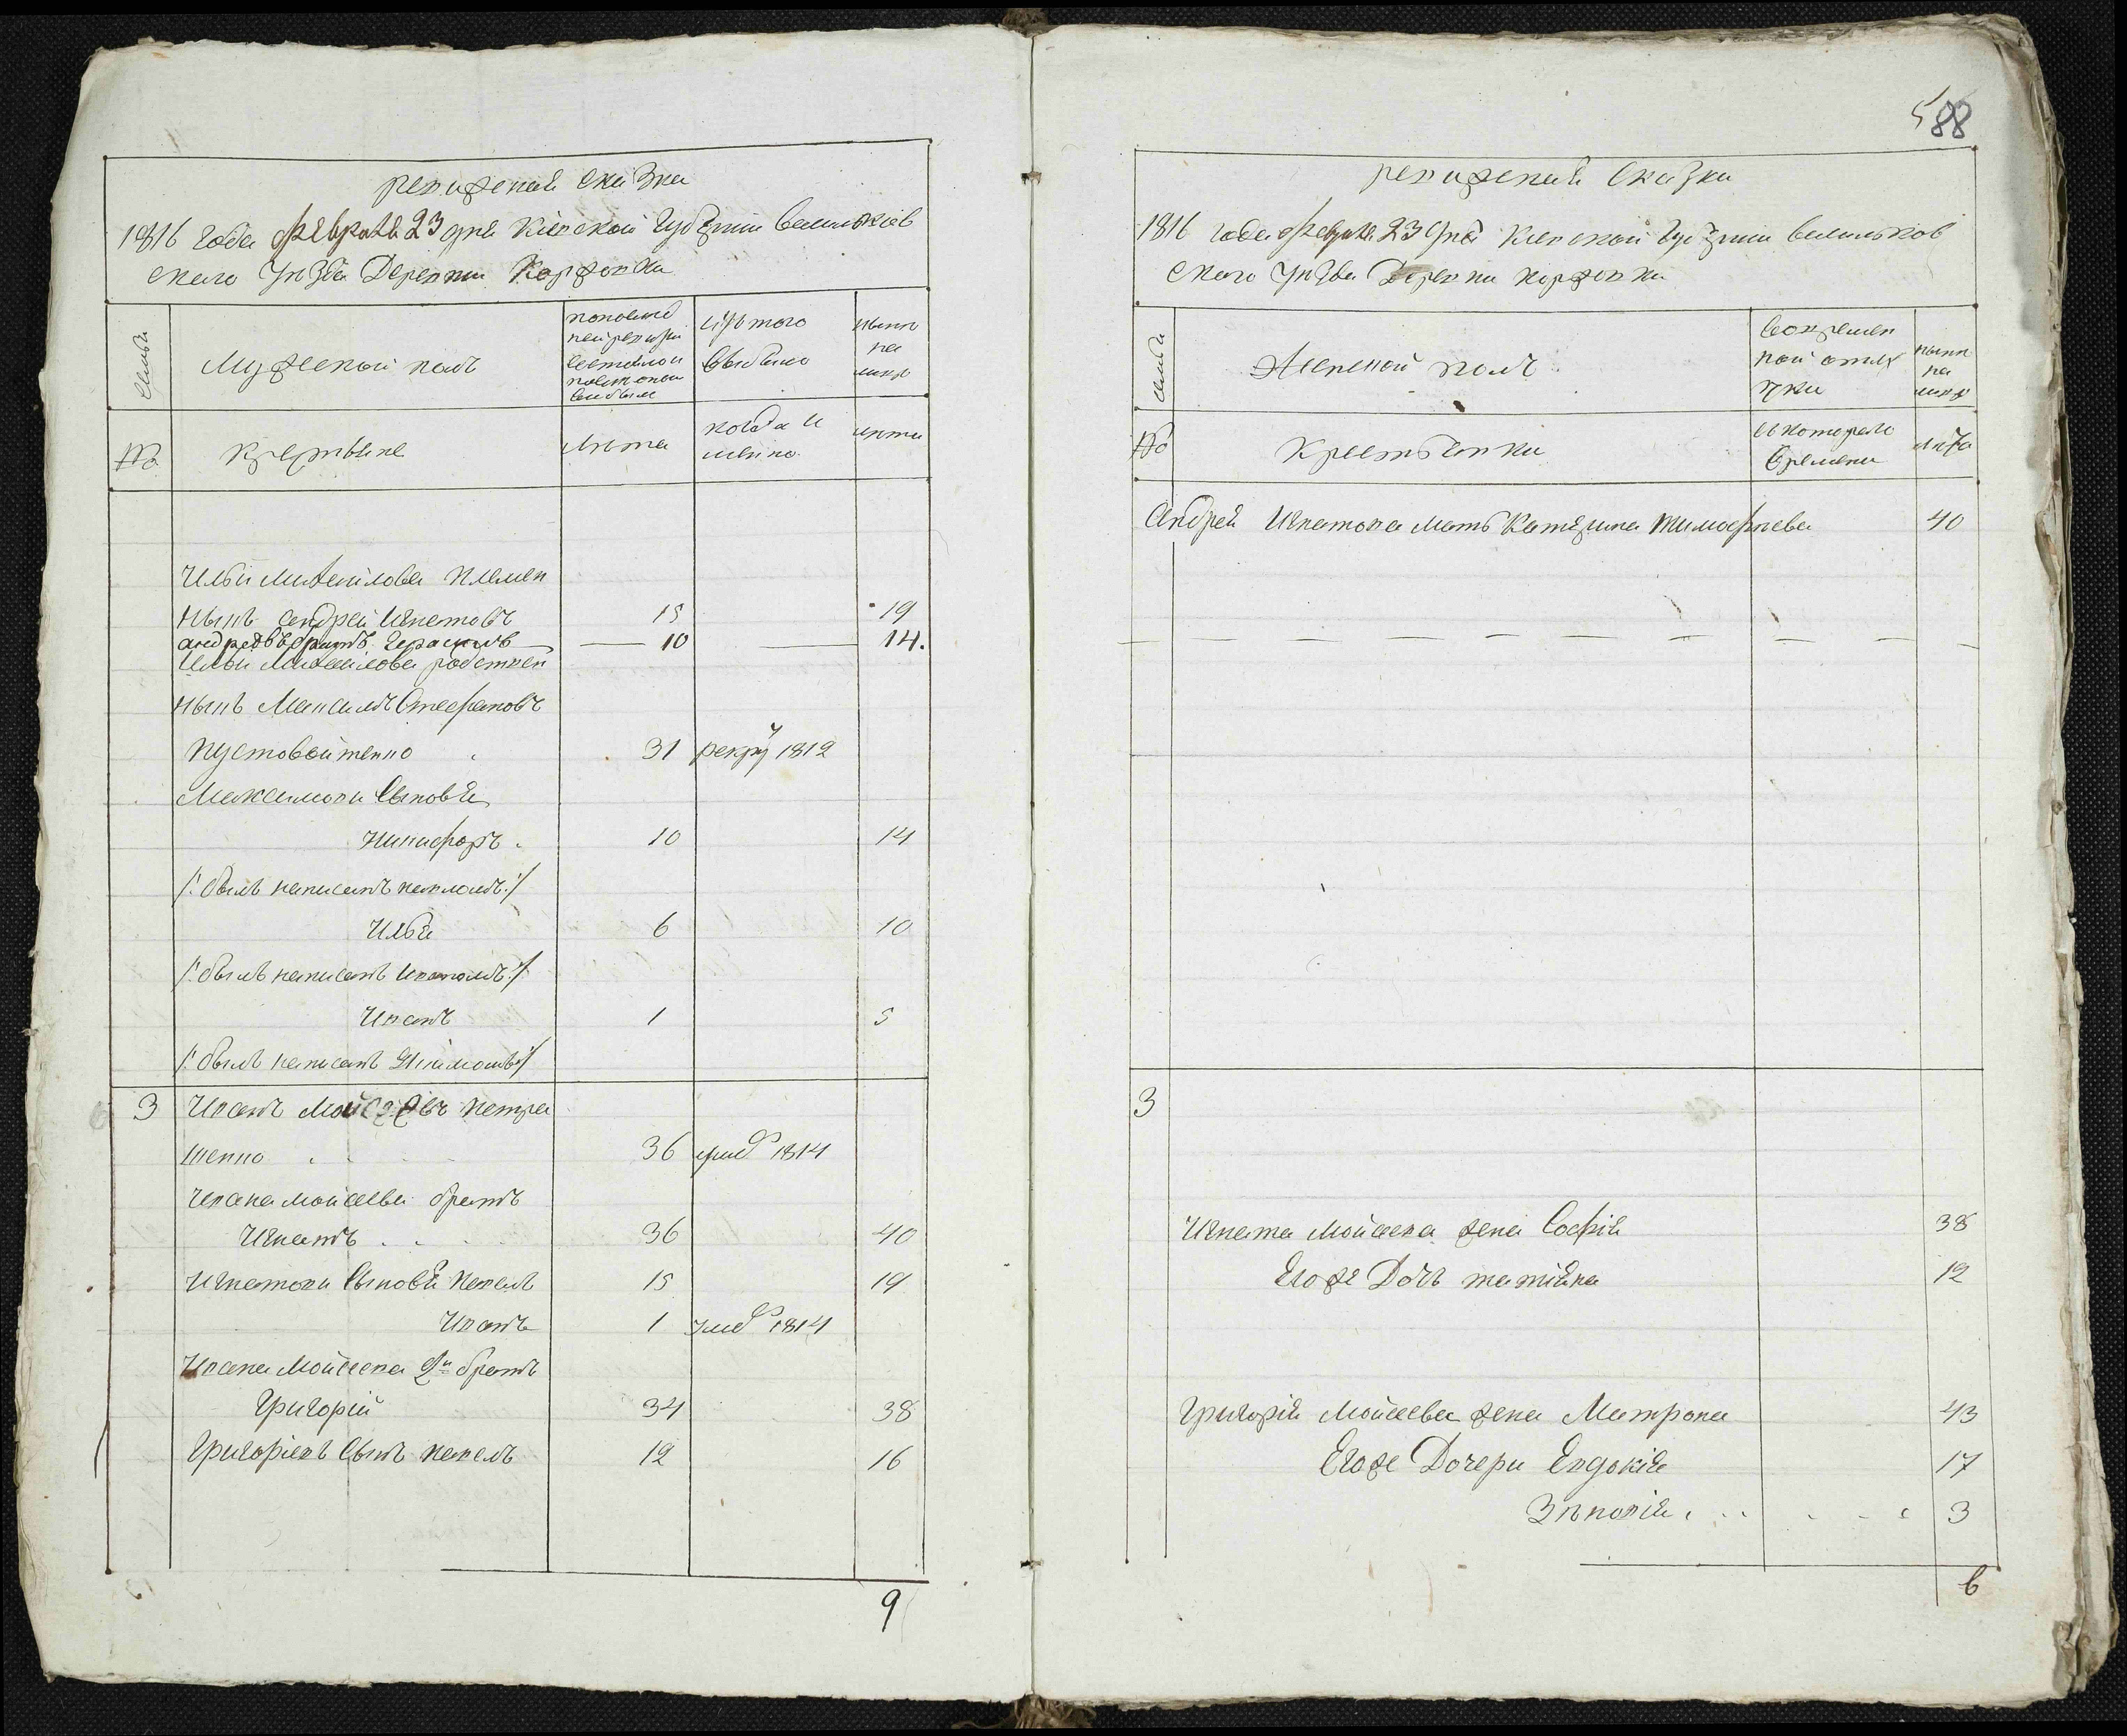 ревизская сказка
1816 года февраля 23 дня Кіевской губерніи васильков
скаго уѣзда Деревни Коржовки
семьи
Мужеской полъ
по послед
ней ревизіи
состояло и
после оной
изъ того
выбыло
нынѣ
на
лицо
№
крестьяне
лѣта
когда и
имянно
лѣта
Ильи михайлова племян
никъ андрей игнатовъ 15 19
андреевъ братъ герасимъ 10 14.
Ильи михайлова работнен
никъ Максимъ Стефановъ
пустовойтенко 31 рекру 1812
Максимови сыновья
никифоръ 10 14
/: былъ написанъ павломъ :/
Илья 6 10
/: былъ написанъ иваномъ :/
Иванъ 1 5
/: былъ написанъ :/
3 Иванъ Мойсеевъ петра
шенко 36 умеР 1814
Ивана мойсеева братъ
Игнатъ 36 40
Игнатови сыновья павелъ 15 19
Иванъ 1 умеР 1814
Ивана Мойсеева 2й братъ
Григорій 34 38
Григоріевъ сынъ павелъ 12 16
9
588
ревизская сказка
1816 года февраля 23 дня Кіевской губерніи васильков
скаго уѣзда Деревни коржовки
семьи
Женской полъ
во времен
ной отлу
чки
нынѣ
на
лицо
№
крестьянки
съ котораго
времени
лѣта
андрея игнатова мать катерина тимофеева 40
3
Игната мойсеева жена софія 38
Егоже Дочь татіяна 12
григорія мойсеева жена матрона 43
Егоже Дочери Евдокія 17
Зѣновія 3
6